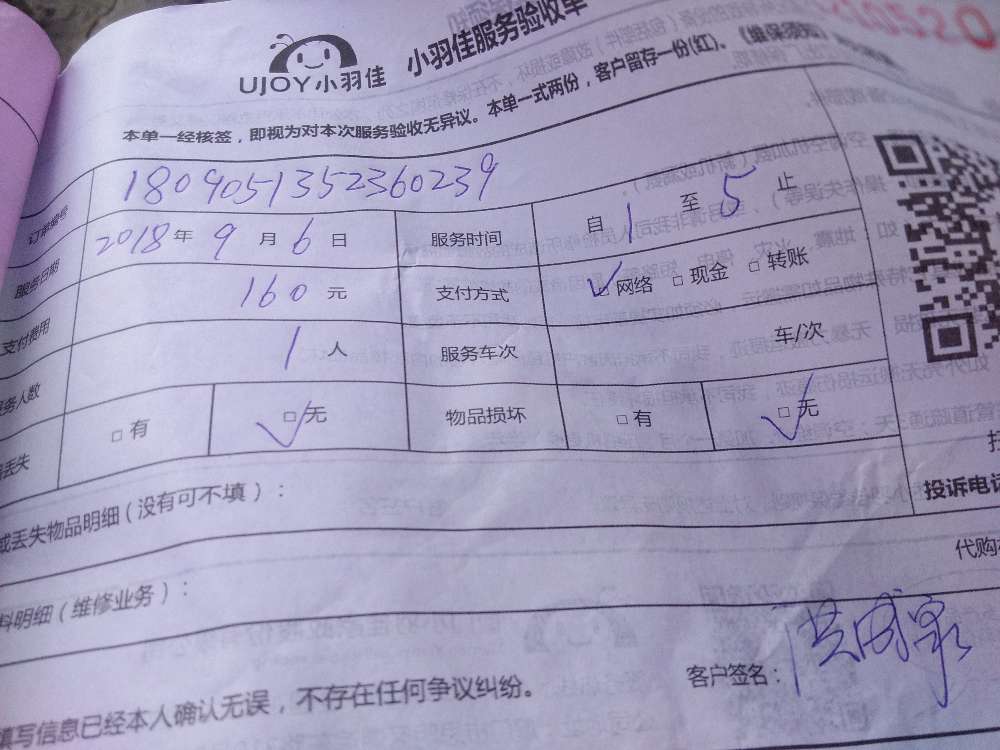 UJOY小羽佳 小羽佳服务验收单
10520
本单一经核签，即视为对本次服务验收无异议。本单一式两份，客户留存一份(红)。《维保须知》
订单编号 1809051352360239
服务日期 2018年9月6日 服务时间 自1至5止
支付费用 160元 支付方式 ☑网络 □现金 □转账
务人数 1人 服务车次 车/次
丢失 □有 ☑无 物品损坏 □有 ☑无
或丢失物品明细(没有可不填)：
投诉电话
料明细(维修业务)：
代购
填写信息已经本人确认无误，不存在任何争议纠纷。
客户签名：洪成家